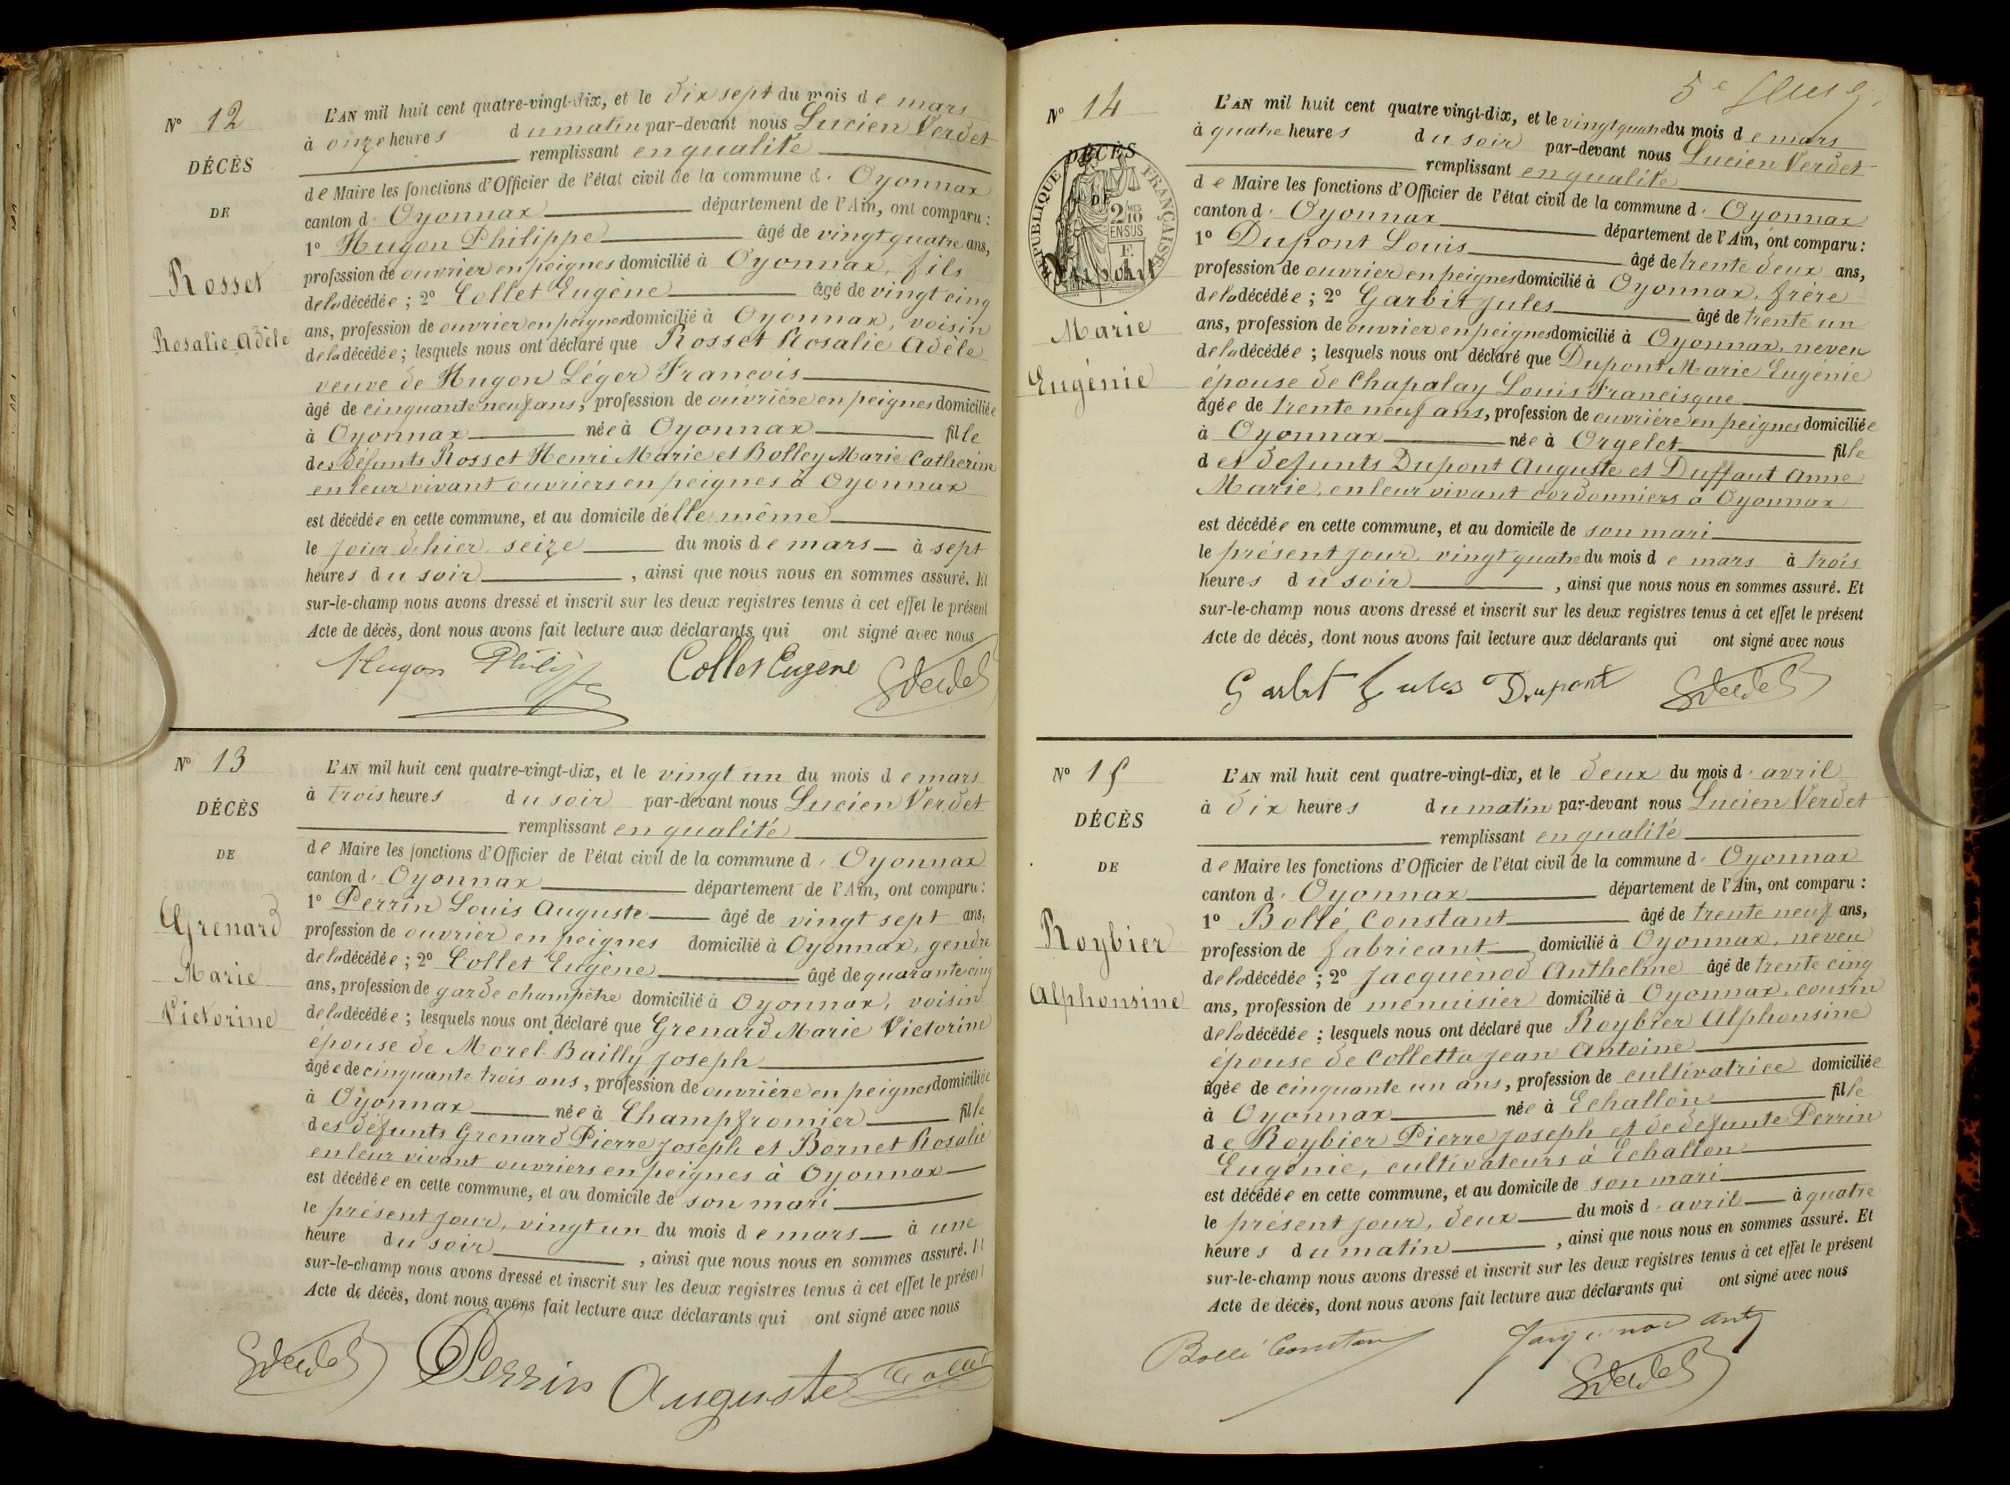 N° 12
DÉCÈS
DE
Rosset
Rosalie Adèle
L'AN mil huit cent quatre-vingt-dix, et le dix sept du mois de mars
à onze heures du matin par-devant nous Lucien Verdet
remplissant en qualité
de Maire les fonctions d'Officier de l'état civil de la commune d' Oyonnax
canton d' Oyonnax département de l'Ain, ont comparu :
1° Hugon Philippe âgé de vingt quatre ans,
profession de ouvrier en peignes domicilié à Oyonnax, fils
de la décédée ; 2° Collet Eugène âgé de vingt cinq
ans, profession de ouvrier en peignes domicilié à Oyonnax, voisin
de la décédée ; lesquels nous ont déclaré que Rosset Rosalie Adèle
veuve de Hugon Léger François
âgé de cinquante neuf ans, profession de ouvrière en peignes domiciliée
à Oyonnax née à Oyonnax fille
des défunts Rosset Henri Marie et Bolley Marie Catherine
en leur vivant ouvriers en peignes à Oyonnax
est décédée en cette commune, et au domicile d'elle même
le jour d'hier, seize du mois de mars à sept
heures du soir , ainsi que nous nous en sommes assuré. Et
sur-le-champ nous avons dressé et inscrit sur les deux registres tenus à cet effet le présent
Acte de décès, dont nous avons fait lecture aux déclarants qui ont signé avec nous
Hugon Philippe Collet Eugène
N° 13
DÉCÈS
DE
Grenard
Marie
Victorine
L'AN mil huit cent quatre-vingt-dix, et le vingt un du mois de mars
à trois heures du soir par-devant nous Lucien Verdet
remplissant en qualité
de Maire les fonctions d'Officier de l'état civil de la commune d' Oyonnax
canton d' Oyonnax département de l'Ain, ont comparu :
1° Perrin Louis Auguste âgé de vingt sept ans,
profession de ouvrier en peignes domicilié à Oyonnax, gendre
de la décédée ; 2° Collet Eugène âgé de quarante cinq
ans, profession de garde champêtre domicilié à Oyonnax, voisin
de la décédée ; lesquels nous ont déclaré que Grenard Marie Victorine
épouse de Morel-Bailly Joseph
âgée de cinquante trois ans, profession de ouvrière en peignes domiciliée
à Oyonnax née à Champfromier fille
des défunts Grenard Pierre Joseph et Bornet Rosalie
en leur vivant ouvriers en peignes à Oyonnax
est décédée en cette commune, et au domicile de son mari
le présent jour, vingt un du mois de mars à une
heure du soir , ainsi que nous nous en sommes assuré. Et
sur-le-champ nous avons dressé et inscrit sur les deux registres tenus à cet effet le présent
Acte de décès, dont nous avons fait lecture aux déclarants qui ont signé avec nous
Perrin Auguste
5e
N° 14
DÉCÈS
DE
RÉPUBLIQUE FRANÇAISE
2/10
EN SUS
Dupont
Marie
Eugénie
L'AN mil huit cent quatre vingt-dix, et le vingt quatre du mois de mars
à quatre heures du soir par-devant nous Lucien Verdet
remplissant en qualité
de Maire les fonctions d'Officier de l'état civil de la commune d' Oyonnax
canton d' Oyonnax département de l'Ain, ont comparu :
1° Dupont Louis âgé de trente deux ans,
profession de ouvrier en peignes domicilié à Oyonnax, frère
de la décédée ; 2° Garbit Jules âgé de trente un
ans, profession de ouvrier en peignes domicilié à Oyonnax, neveu
de la décédée ; lesquels nous ont déclaré que Dupont Marie Eugénie
épouse de Chapalay Louis Francisque
âgée de trente neuf ans, profession de ouvrière en peignes domiciliée
à Oyonnax née à Orgelet fille
des défunts Dupont Auguste et Duffaut Anne
Marie, en leur vivant cordonniers à Oyonnax
est décédée en cette commune, et au domicile de son mari
le présent jour, vingt quatre du mois de mars à trois
heures du soir , ainsi que nous nous en sommes assuré. Et
sur-le-champ nous avons dressé et inscrit sur les deux registres tenus à cet effet le présent
Acte de décès, dont nous avons fait lecture aux déclarants qui ont signé avec nous
Garbit Jules Dupont
N° 15
DÉCÈS
DE
Roybier
Alphonsine
L'AN mil huit cent quatre-vingt-dix, et le deux du mois d' avril
à dix heures du matin par-devant nous Lucien Verdet
remplissant en qualité
de Maire les fonctions d'Officier de l'état civil de la commune d' Oyonnax
canton d' Oyonnax département de l'Ain, ont comparu :
1° Bollé Constant âgé de trente neuf ans,
profession de fabricant domicilié à Oyonnax, neveu
de la décédée ; 2° Jacquenod Anthelme âgé de trente cinq
ans, profession de menuisier domicilié à Oyonnax, cousin
de la décédée ; lesquels nous ont déclaré que Roybier Alphonsine
épouse de Colletta Jean Antoine
âgée de cinquante un ans, profession de cultivatrice domiciliée
à Oyonnax née à Echallon fille
de Roybier Pierre Joseph et de défunte Perrin
Eugénie, cultivateurs à Echallon
est décédée en cette commune, et au domicile de son mari
le présent jour, deux du mois d' avril à quatre
heures du matin , ainsi que nous nous en sommes assuré. Et
sur-le-champ nous avons dressé et inscrit sur les deux registres tenus à cet effet le présent
Acte de décès, dont nous avons fait lecture aux déclarants qui ont signé avec nous
Bollé Constant Jacquenod ant